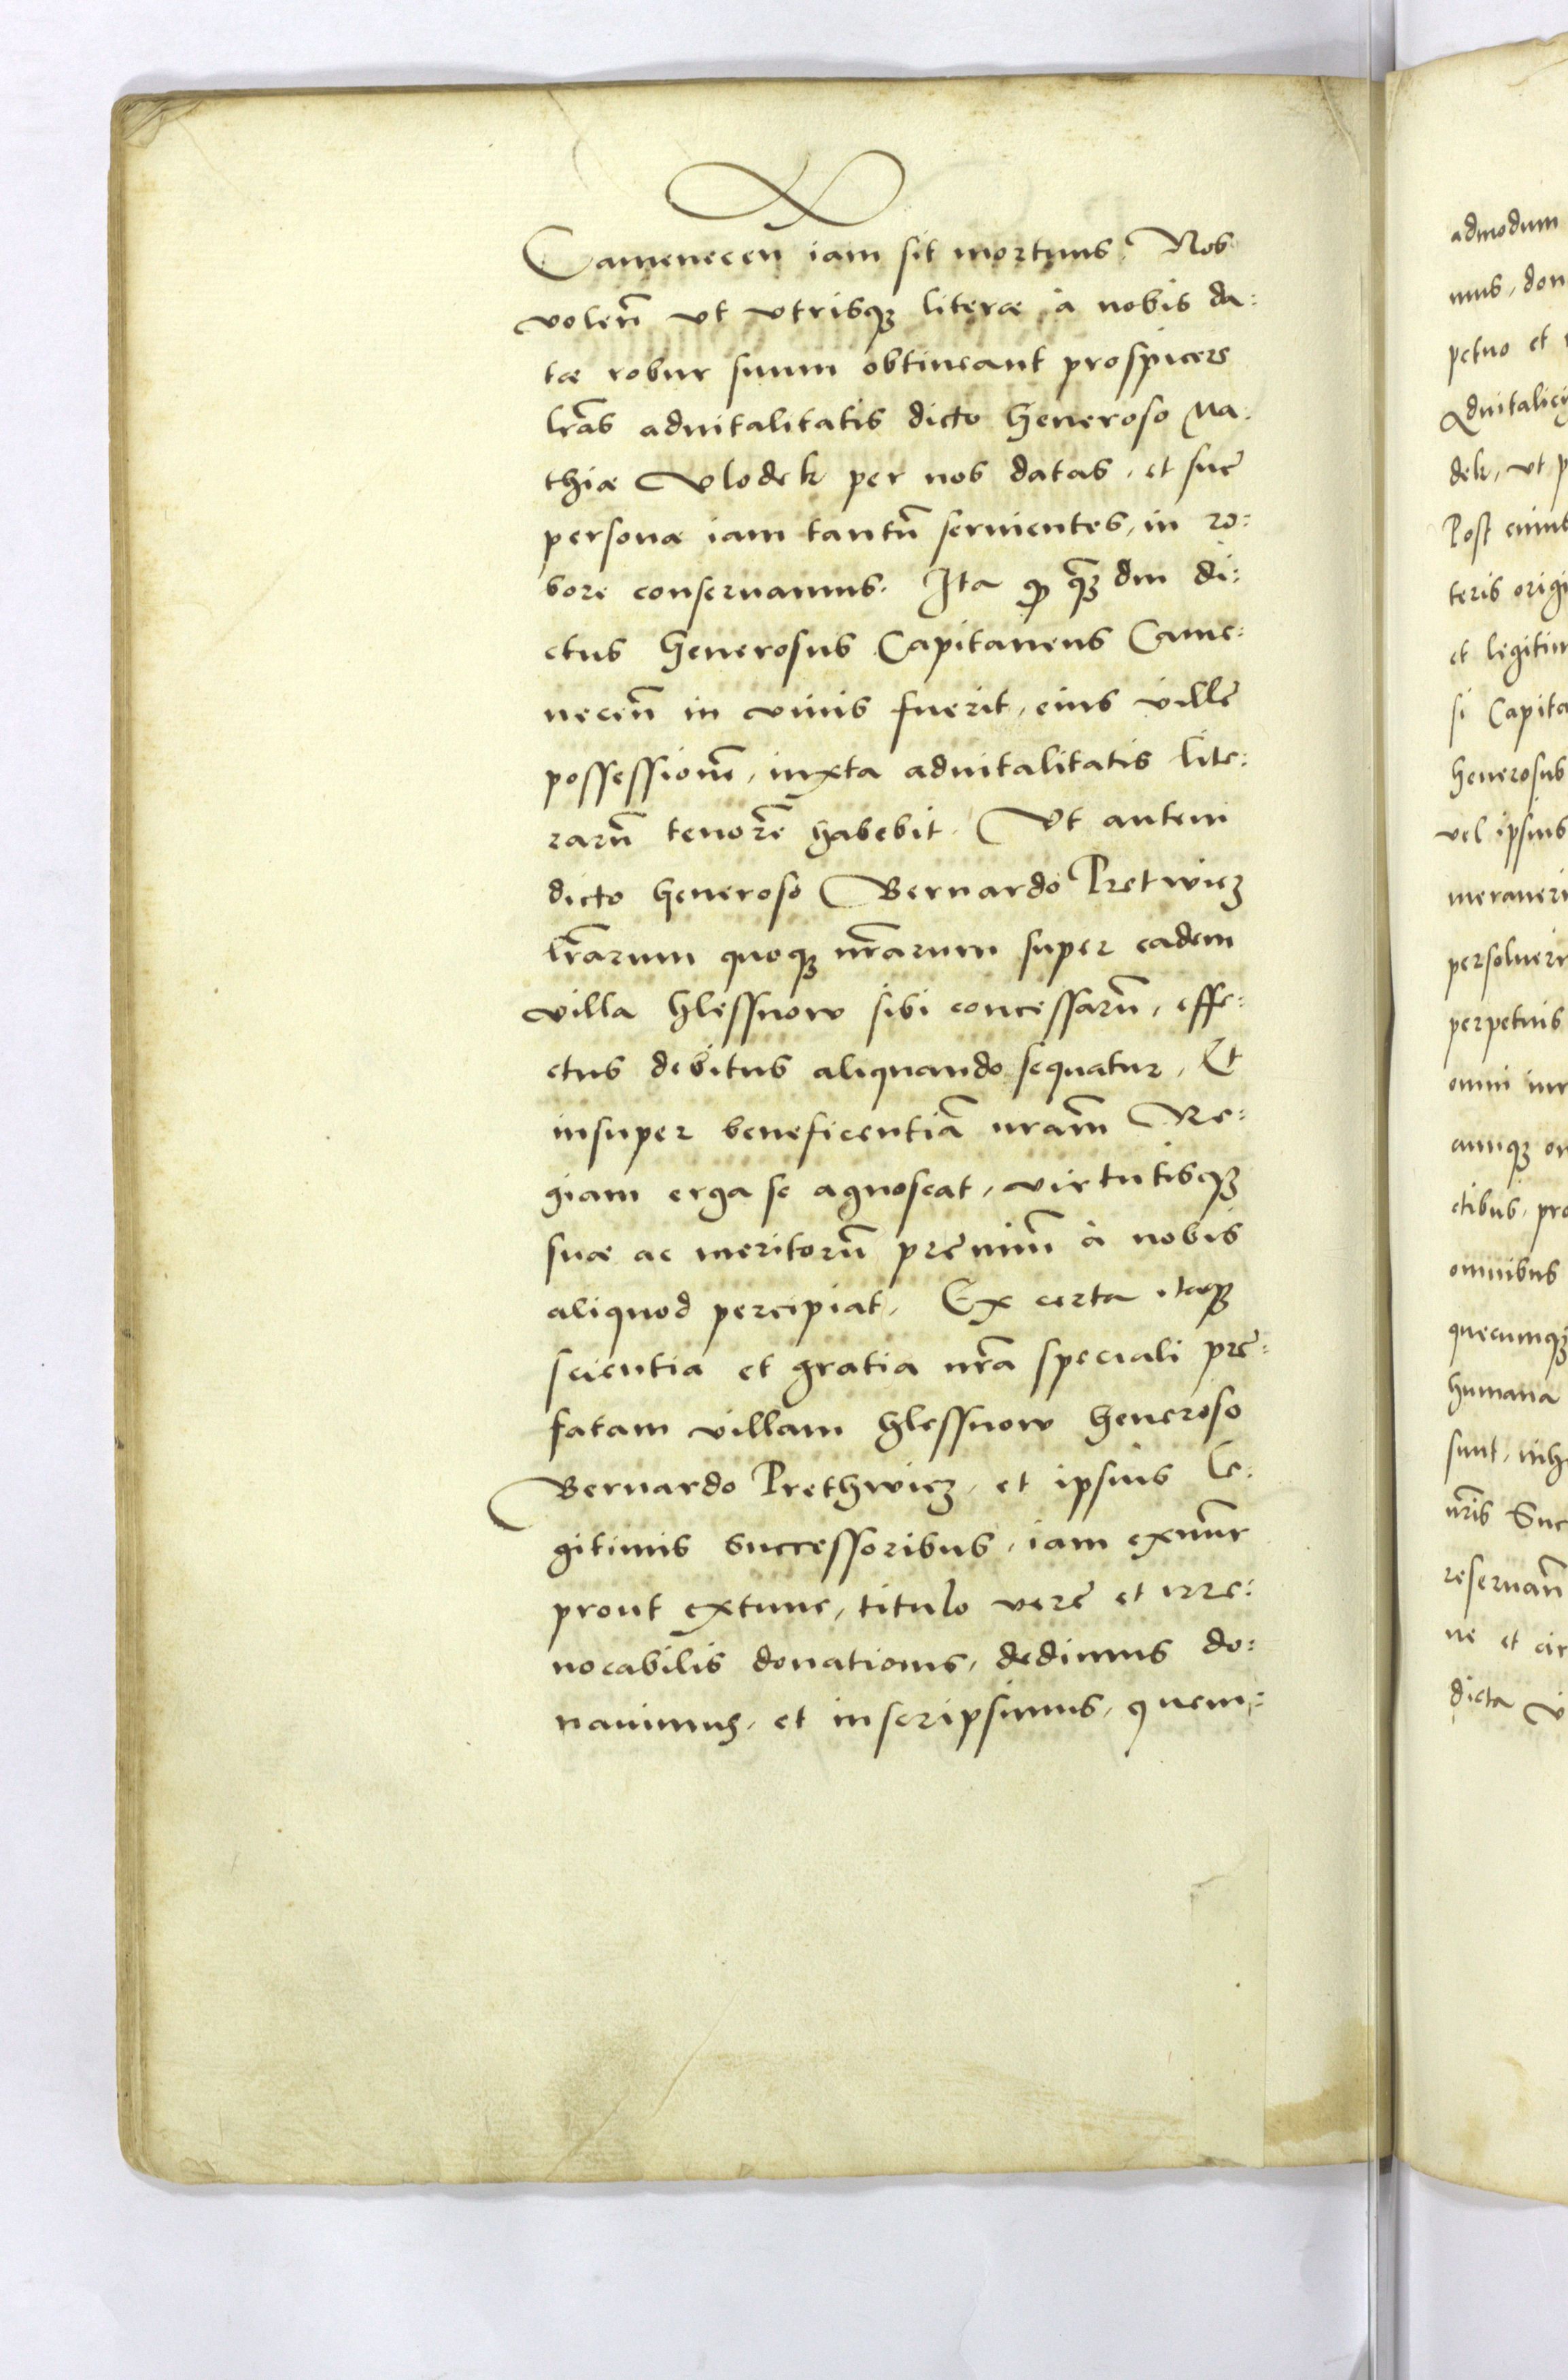 Camenecen̄ iam sit mortuus. Nos
volen̄ vt vtrisqꝫ literæ à nobis da:
tæ robur suum obtineant prospicere
lr̄as aduitalitatis dicto Generoso Ma:
thiæ Vlodek per nos datas, et sue
personæ iam tantū seruientes, in ro:
bore conseruamus. Ita ꝙ qᷓꝫ diu di:
ctus Generosus Capitaneus Came:
necen̄ in viuis fuerit, eius ville
possessionē, iuxta aduitalitatis lite:
rarū tenorē habebit. Vt autem
dicto generoso Bernardo Pretwicz
lr̄arum quoqꝫ nr̄arum super eadem
villa Hlessnow sibi concessarū, effe:
ctus debitus aliquando sequatur, Et
insuper beneficentiā nr̄am Re:
giam erga se agnoscat, virtutisqꝫ
suæ ac meritorū premiū à nobis
aliquod percipiat, Ex certa itaqꝫ
scientia et gratia nr̄a speciali pre:
fatam villam Hlessnow Generoso
Bernardo Prethwicz, et ipsius le:
gitimis successoribus, iam exnunc
prout extunc, titulo vere et irre:
uocabilis donationis, dedimus do:
nauimus, et inscripsimus, quem:
admodum
mus, don
petuo et
Aduitalici
dek, vt p
Post eius
teris origi
et legitim
si Capita
Generosus
vel ipsius
meraueri
persoluer
perpetuis
omni iur
cumqꝫ or
ctibus, pro
omnibus
quecumqꝫ
humana
sunt, nih
nr̄is Suc
reseruan̄
ne et cir
dicta v